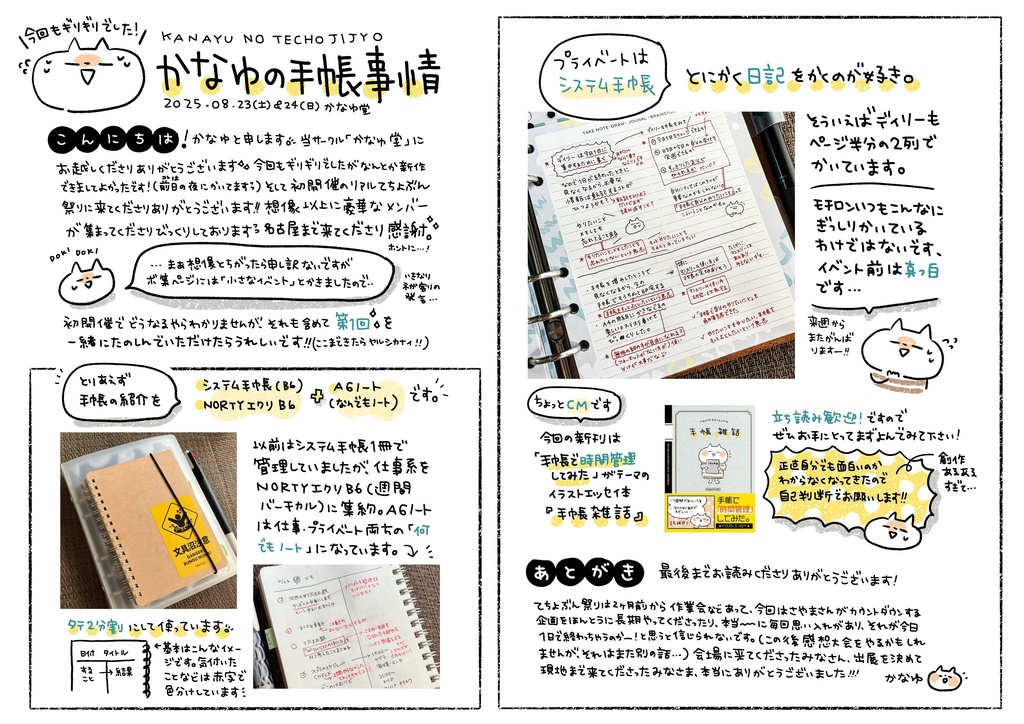 今回もギリギリでした!
KANAYU NO TECHOJIJYO
かなゆの手帳事情
2025.08.23(土)&24(日) かなゆ堂
こんにちは!かなゆと申します。当サークル「かなゆ堂」に
お越しくださりありがとうございます。今回もギリギリでしたがなんとか新作
できましてよかったです!(前日の夜にかいてます)そして初開催のリアルてちょぶん
祭りに来てくださりありがとうございます!!想像以上に豪華なメンバー
が集まってくださりびっくりしております。名古屋まで来てくださり感謝。
ホントに…!
DOKI DOKI
…まあ想像とちがったら申し訳ないですが
ボ集ページには「小さなイベント」とかきましたので…
初開催でどうなるやらわかりませんが、それも含めて第1回を
一緒にたのしんでいただけたらうれしいです!!(ここまできたらヤルシカナイ!!)
とりあえず
手帳の紹介を
システム手帳(B6)
NORTYエクリB6
+
A6ノート
(なんでもノート)
です。
以前はシステム手帳1冊で
管理していましたが、仕事系を
NORTYエクリB6(週間
バーチカル)に集約。A6ノート
は仕事・プライベート両方の「何
でもノート」になっています。
文具沼注意
タテ2分割にして使っています。
日付 タイトル
するこ と → 結果
基本はこんなイメー
ジです。気付いた
ことなどは赤字で
色分けしています
プライベートは
システム手帳
とにかく日記をかくのが好き。
TAKE NOTE・DRAW・JOURNAL・BRAINST
そういえばデイリーも
ページ半分の2列で
かいています。
モチロンいつもこんなに
ぎっしりかいている
わけではないです、
イベント前は真っ白
です…
来週から
またがんば
ります〜!!
ちょっとCMです
今回の新刊は
「手帳で時間管理
してみた」がテーマの
イラストエッセイ本
『手帳雑話』
手帳雑話
手帳で
「時間管理」
してみた。
立ち読み歓迎!ですので
ぜひお手にとってまずよんでみて下さい!
正直自分でも面白いのか
わからなくなってきたので
自己判断でお願いします!!
創作
あるある
すぎて…
あとがき
最後までお読みくださりありがとうございます!
てちょぶん祭りは2ヶ月前から作業会などあって、今回はさやまさんがカウントダウンする
企画をほんとうに長期やってくださったり、本当〜に毎回思い入れがあり、それが今日
1日で終わっちゃうのか…!と思うと信じられないです。(この後感想大会をやるかもしれ
ませんが、それはまた別の話…)会場に来てくださったみなさん、出展を決めて
現地まで来てくださったみなさま、本当にありがとうございました!!!
かなゆ